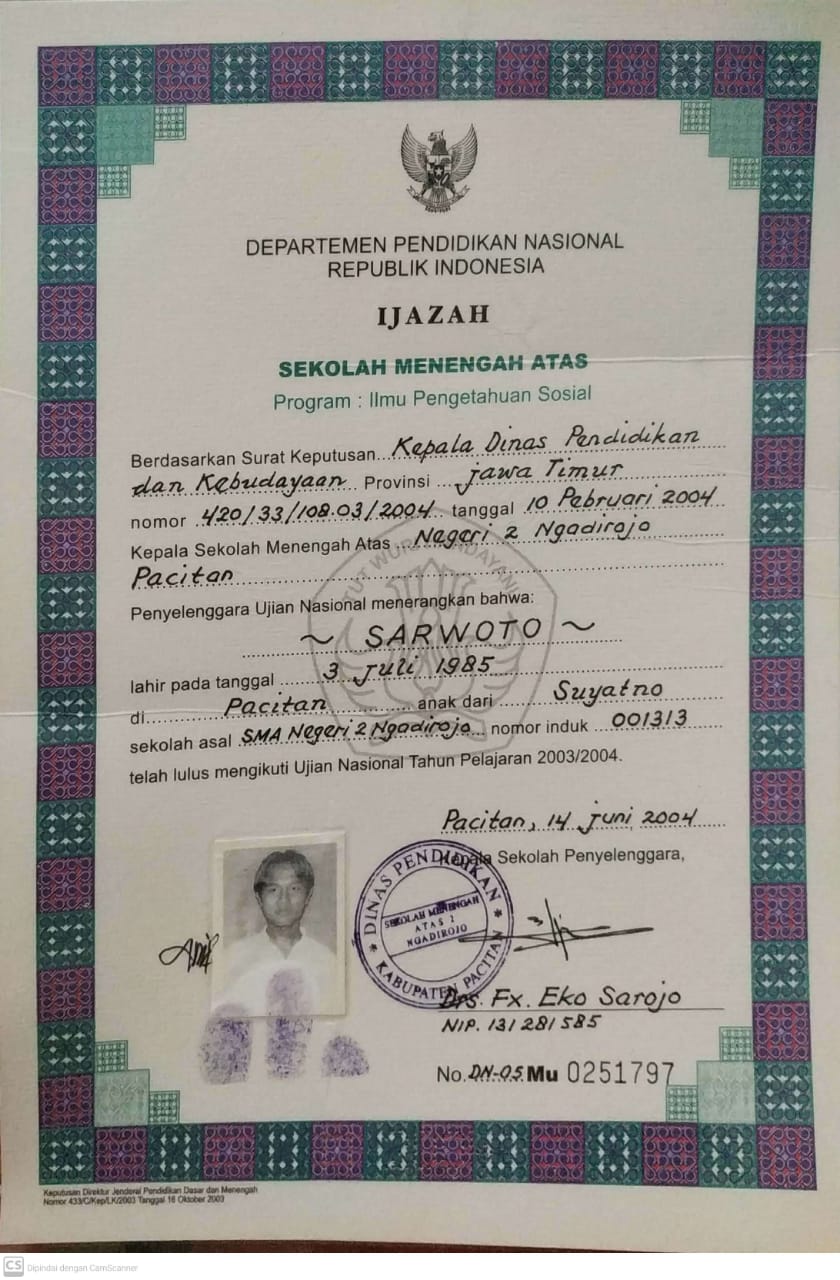 DEPARTEMEN PENDIDIKAN NASIONAL
REPUBLIK INDONESIA
IJAZAH
SEKOLAH MENENGAH ATAS
Program : Ilmu Pengetahuan Sosial
Berdasarkan Surat Keputusan Kepala Dinas Pendidikan
dan Kebudayaan Provinsi Jawa Timur
nomor 420/33/108.03/2004 tanggal 10 Pebruari 2004
Kepala Sekolah Menengah Atas Negeri 2 Ngadirojo
Pacitan
Penyelenggara Ujian Nasional menerangkan bahwa:
~ SARWOTO ~
lahir pada tanggal 3 Juli 1985
di Pacitan anak dari Suyatno
sekolah asal SMA Negeri 2 Ngadirojo nomor induk 001313
telah lulus mengikuti Ujian Nasional Tahun Pelajaran 2003/2004.
Pacitan, 14 Juni 2004
Kepala Sekolah Penyelenggara,
DINAS PENDIDIKAN
SEKOLAH MENENGAH
ATAS 2
NGADIROJO
KABUPATEN PACITAN
Drs. Fx. Eko Sarojo
NIP. 131281585
No. DN-05 Mu 0251797
Keputusan Direktur Jenderal Pendidikan Dasar dan Menengah
Nomor 433/C/Kep/LK/2003 Tanggal 16 Oktober 2003
CS Dipindai dengan CamScanner